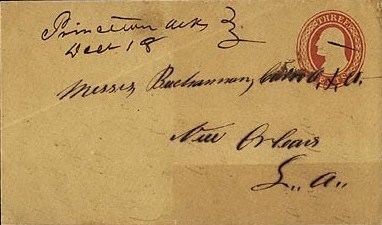 Princeton Arks
Decr 18
THREE
CENTS
Messrs Buchannon, Carroll, & Co.
New Orleans
L.. a..